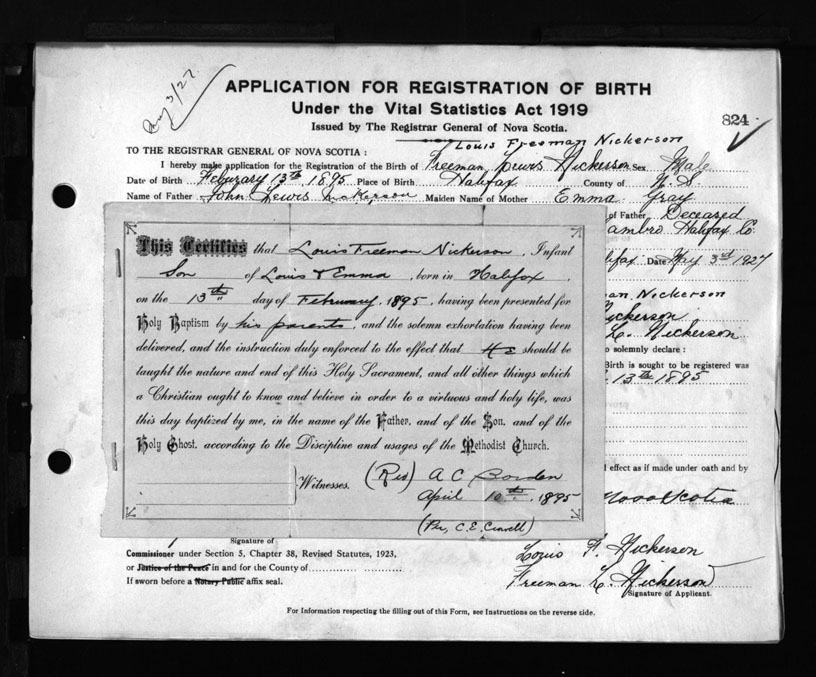 Aug 3/27.
APPLICATION FOR REGISTRATION OF BIRTH
Under the Vital Statistics Act 1919
824
Issued by The Registrar General of Nova Scotia.
Louis Freeman Nickerson
TO THE REGISTRAR GENERAL OF NOVA SCOTIA :
I hereby make application for the Registration of the Birth of Freeman Lewis Nickerson Sex Male
Date of Birth Feburary 13th 1895 Place of Birth Halifax County of N.S.
Name of Father John Lewis Nickerson Maiden Name of Mother Emma Gray
of Father Deceased
ambro Halifax Co.
lifax Date May 3rd 1927
man Nickerson
Nickerson
L. Nickerson
o solemnly declare :
Birth is sought to be registered was
13th 1895
This Certifies that Louis Freeman Nickerson, Infant
Son of Louis & Emma, born in Halifax,
on the 13th day of February, 1895, having been presented for
Holy Baptism by his parents, and the solemn exhortation having been
delivered, and the instruction duly enforced to the effect that He should be
taught the nature and end of this Holy Sacrament, and all other things which
a Christian ought to know and believe in order to a virtuous and holy life, was
this day baptized by me, in the name of the Father, and of the Son, and of the
Holy Ghost, according to the Discipline and usages of the Methodist Church.
Witnesses. (Rev) A C Borden
April 10th, 1895
(Per, C.E.
d effect as if made under oath and by
Nova Scotia
Signature of
Commissioner under Section 5, Chapter 38, Revised Statutes, 1923,
or Justice of the Peace in and for the County of
If sworn before a Notary Public affix seal.
Louis F. Nickerson
Freeman L. Nickerson
Signature of Applicant.
For Information respecting the filling out of this Form, see Instructions on the reverse side.